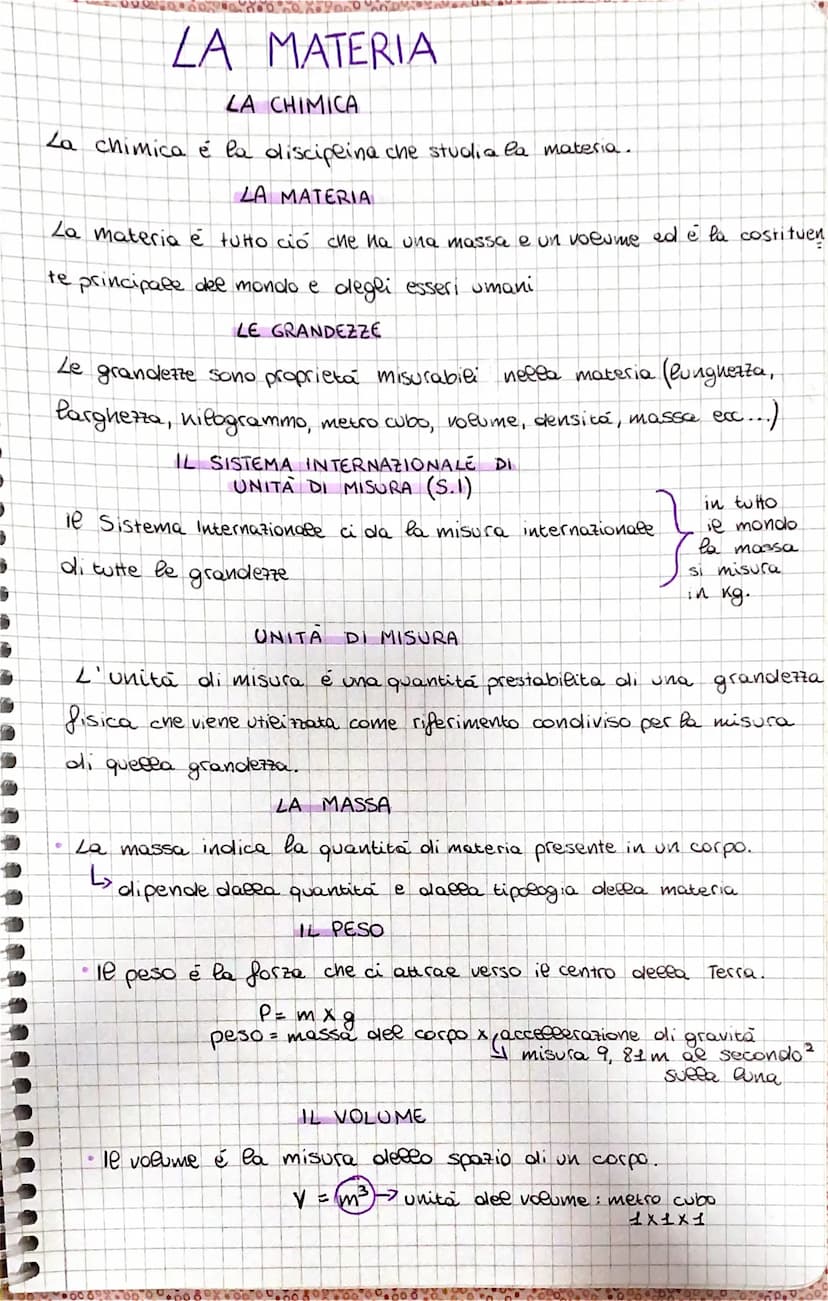 LA MATERIA
LA CHIMICA
La chimica é la disciplina che studia la materia.
LA MATERIA
La materia é tutto ció che ha una massa e un volume ed é la costituen
te principale del mondo e degli esseri umani
LE GRANDEZZE
Le grandezze sono proprietá misurabili nella materia (lunghezza,
larghezza, kilogrammo, metro cubo, volume, densitá, massa ecc...)
IL SISTEMA INTERNAZIONALE DI
UNITÀ DI MISURA (S.I)
il Sistema Internazionale ci da la misura internazionale
di tutte le grandezze
in tutto
il mondo
la massa
si misura
in kg.
UNITÀ DI MISURA
L'unitá di misura é una quantitá prestabilita di una grandezza
fisica che viene utilizzata come riferimento condiviso per la misura
di quella grandezza.
LA MASSA
• La massa indica la quantitá di materia presente in un corpo.
↳ dipende dalla quantitá e dalla tipologia della materia
IL PESO
• Il peso é la forza che ci attrae verso il centro della Terra.
P = m x g
peso = massa del corpo x accellerazione di gravitá
↳ misura 9,81m al secondo²
sulla luna
IL VOLUME
• Il volume é la misura dello spazio di un corpo.
V = m³ → unitá del volume : metro cubo
1x1x1